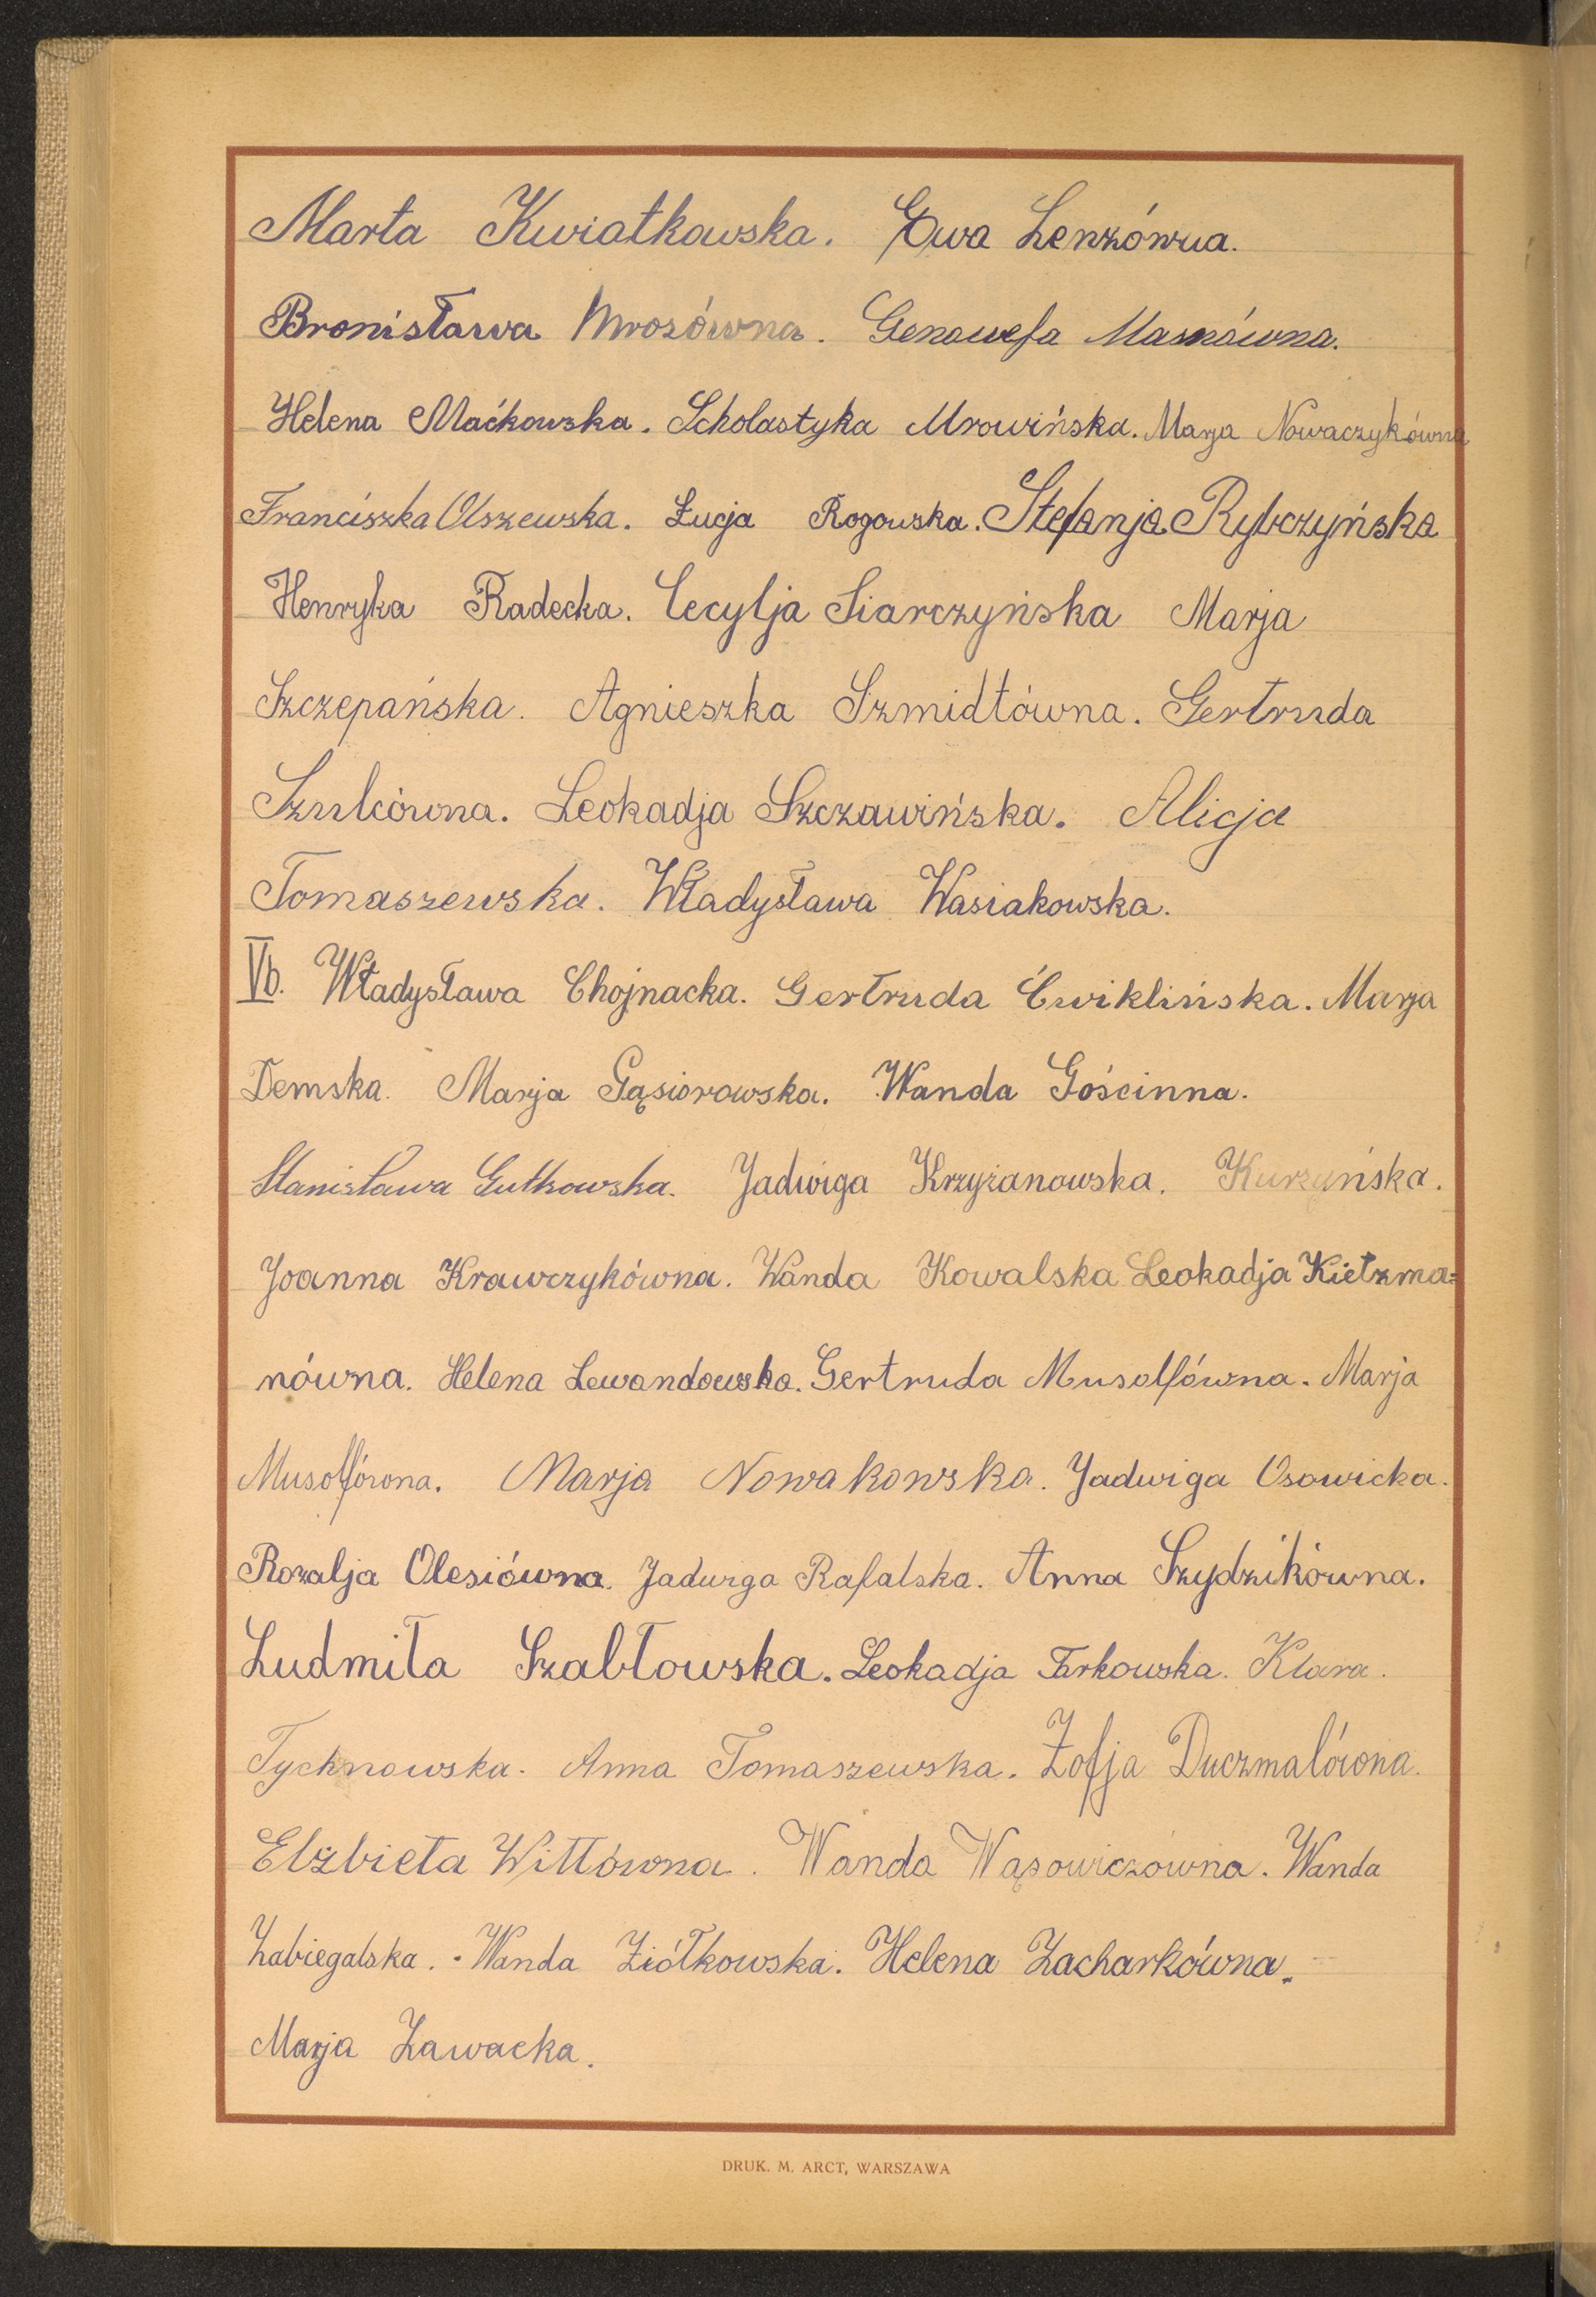 Marta Kwiatkowska. Ewa Lenzówna.
Bronisława Mrozówna. Genowefa Masnówna.
Helena Maćkowska. Scholastyka Mrowińska. Marja Nowaczykówna
Franciszka Olszewska. Łucja Rogowska. Stefanja Rybczyńska
Henryka Radecka. Cecylja Siarczyńska Marja
Szczepańska. Agnieszka Szmidtówna. Gertruda
Szulcówna. Leokadja Szczawińska. Alicja
Tomaszewska. Władysława Wasiakowska.
Vb. Władysława Chojnacka. Gertruda Ćwiklińska. Marja
Demska. Marja Gąsiorowska. Wanda Gościnna.
Stanisława Gutkowska. Jadwiga Krzyżanowska. Kurzyńska.
Joanna Krawczykówna. Wanda Kowalska Leokadja Kietzma=
nówna. Helena Lewandowska. Gertruda Musolfówna. Marja
Musolfówna. Marja Nowakowska. Jadwiga Osowicka.
Rozalja Olesiówna. Jadwiga Rafalska. Anna Szydzikówna.
Ludmiła Szabłowska. Leokadja Tarkowska. Klara.
Tychnowska. Anna Tomaszewska. Zofja Duczmalówna.
Elżbieta Wittówna. Wanda Wąsowiczówna. Wanda
Zabiegalska. Wanda Ziółkowska. Helena Zacharkówna.
Marja Zawacka.
DRUK. M. ARCT, WARSZAWA